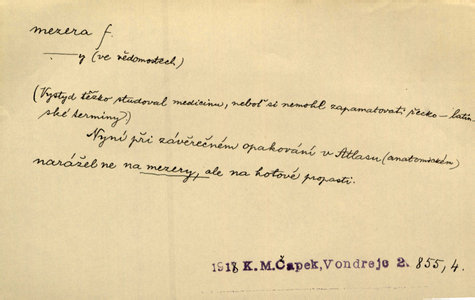 mezera f.
—y (ve vědomostech.)
(Vystyd těžko studoval medicinu, neboť si nemohl zapamatovati řecko-latin-
ské terminy)
Nyní při závěrečném opakování v Atlasu (anatomickém)
narážel ne na mezery, ale na hotové propasti.
1918 K.M.Čapek, Vondrejc 2. 855,4.